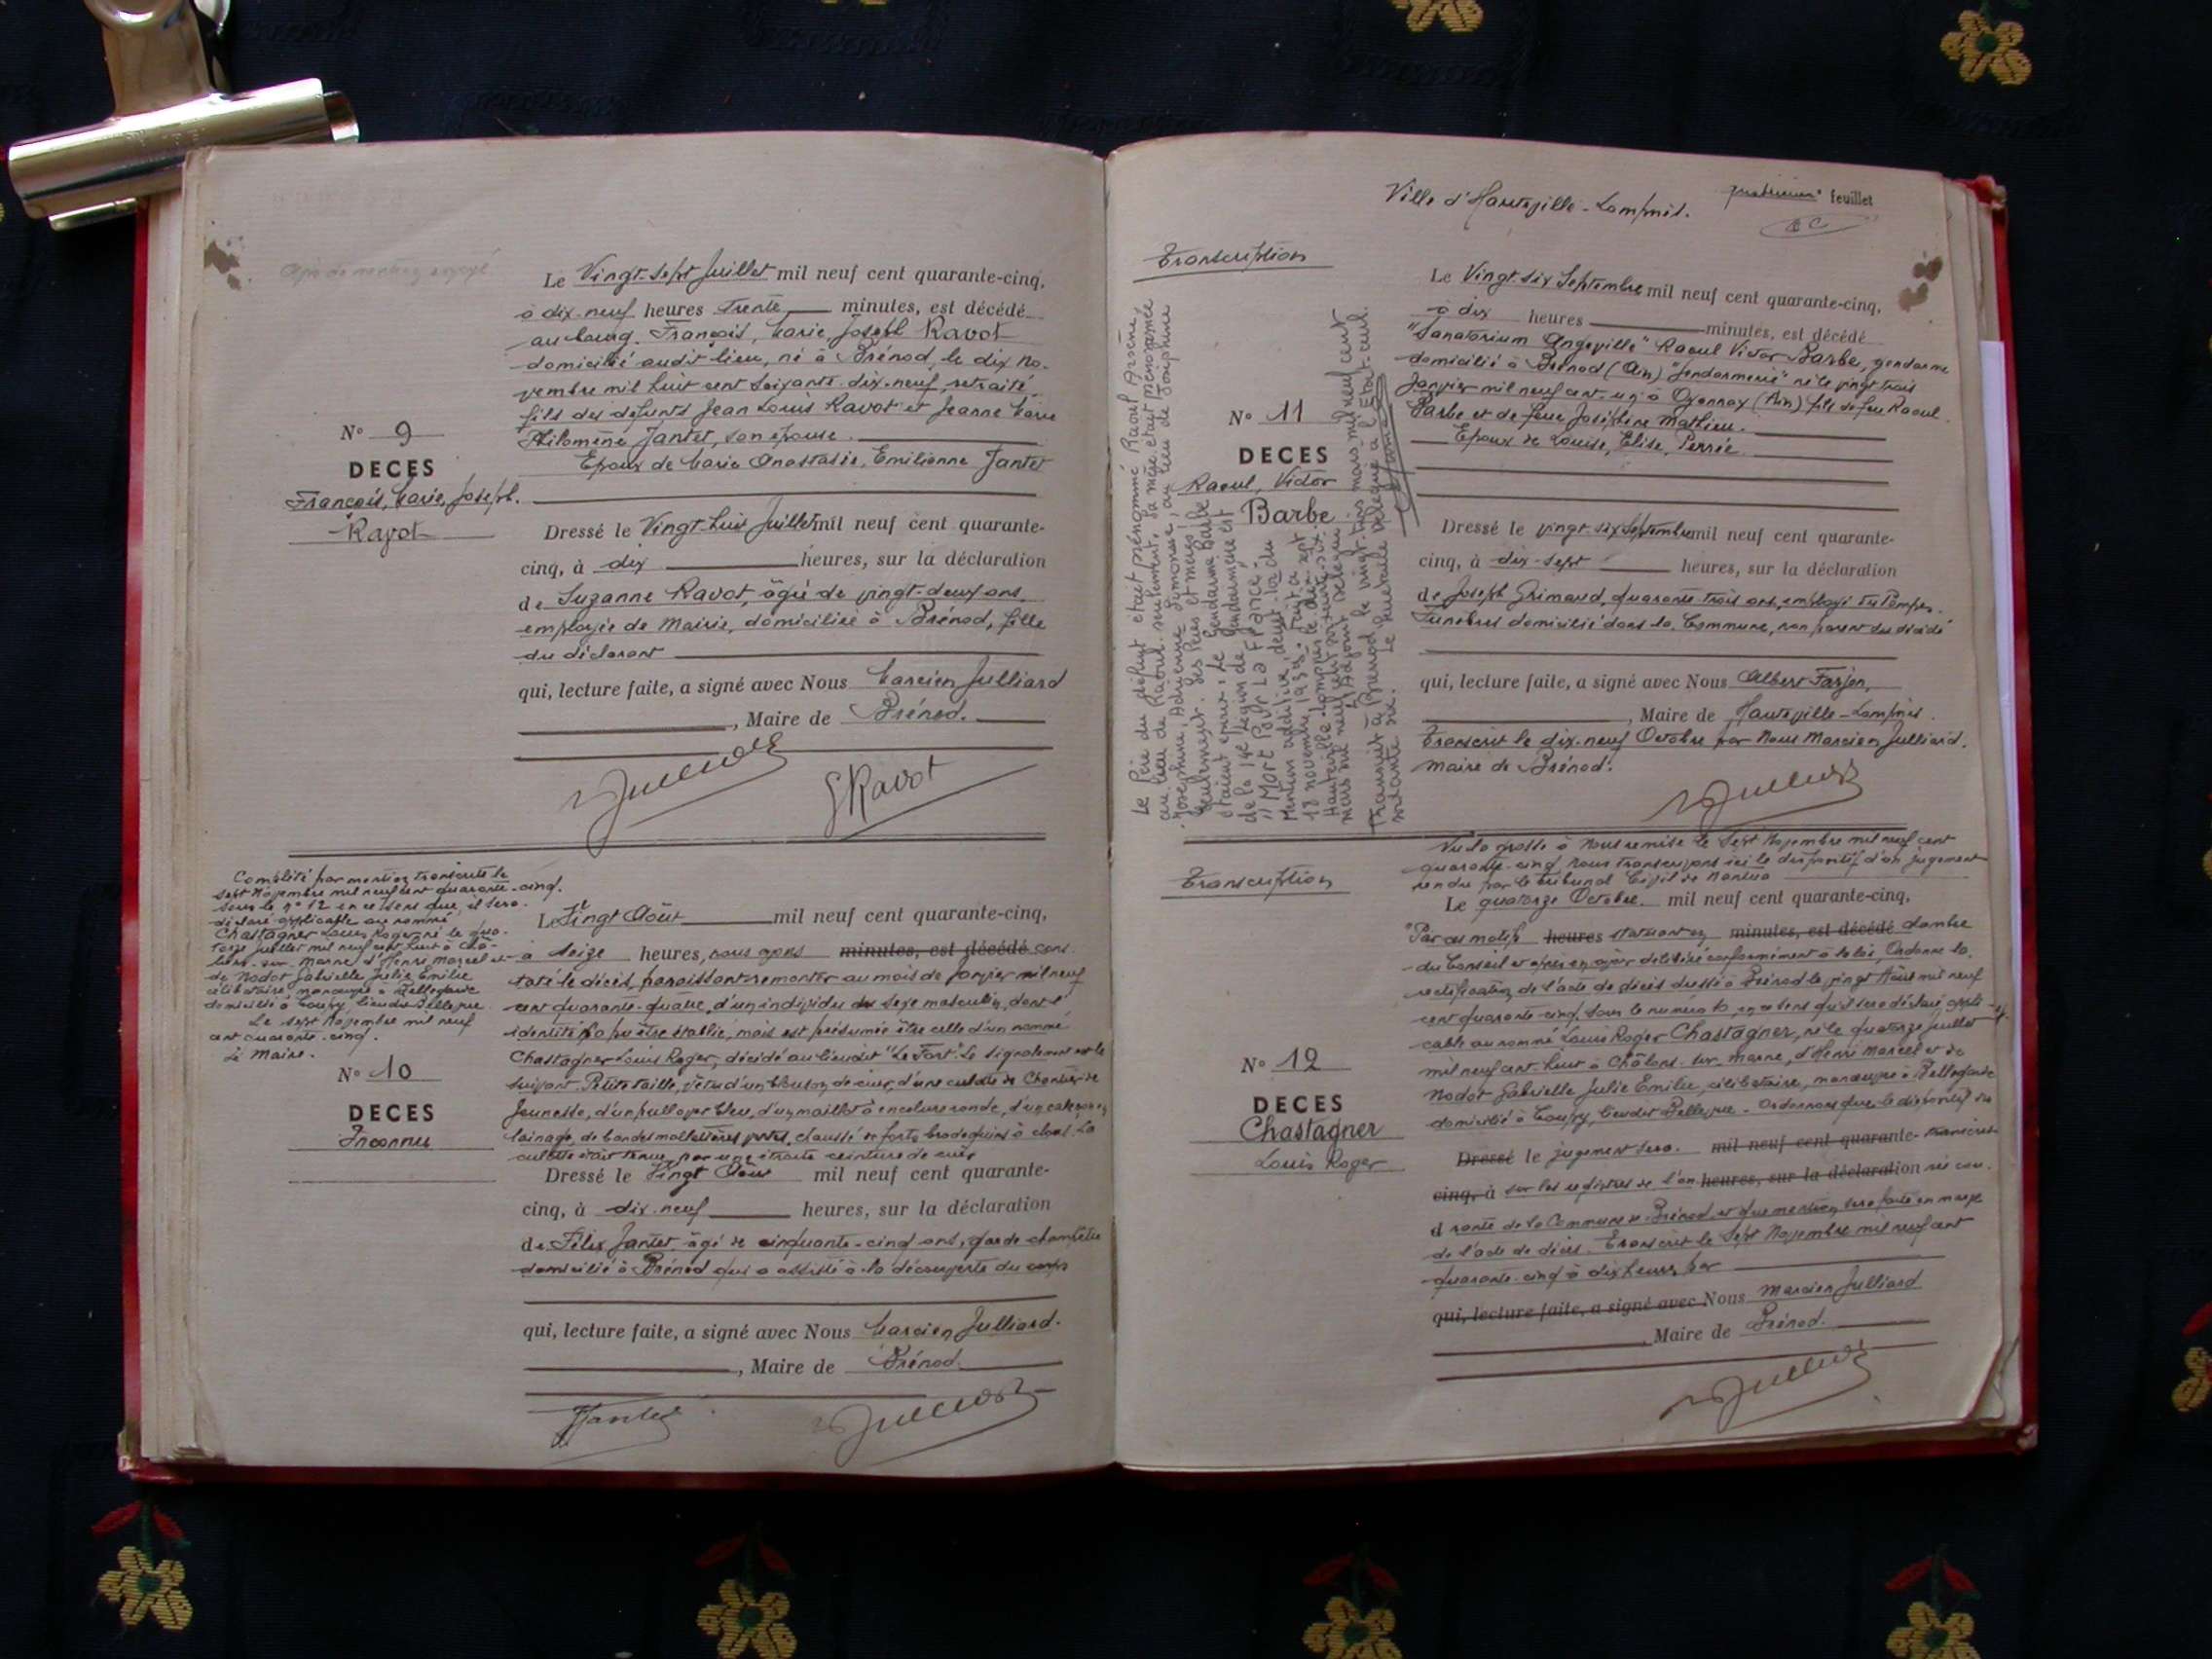 Le Vingt-sept Juillet mil neuf cent quarante-cinq,
à dix-neuf heures trente minutes, est décédé
au bourg, François, Marie, Joseph Ravot
domicilié audit lieu, né à Brénod, le dix no-
vembre mil huit cent soixante-dix-neuf, retraité
fils des défunts Jean Louis Ravot et Jeanne Marie
Philomène Jantet, son épouse.
Epoux de Marie Anastasie, Emilienne Jantet
N° 9
DECES
François, Marie, Joseph.
Ravot
Dressé le Vingt-huit Juillet mil neuf cent quarante-
cinq, à dix heures, sur la déclaration
de Suzanne Ravot, âgée de vingt-deux ans,
employée de Mairie, domiciliée à Brénod, fille
du déclarant
qui, lecture faite, a signé avec Nous Marcien Julliard
, Maire de Brénod.
SRavot
Complété par mention transcrite le
sept Novembre mil neuf cent quarante-cinq.
sous le n° 12 en ce sens que, il sera
déclaré applicable au nommé
Chastagner Louis Roger né le qua-
torze juillet mil neuf cent huit à Châ-
lons-sur-Marne d'Henri Marcel et
de Nodot Gabrielle Julie Emilie
célibataire, manœuvre à Bellegarde
domicilié à Coupy, lieudit Bellevue
Le sept Novembre mil neuf
cent quarante-cinq.
Le Maire.
N° 10
DECES
Inconnu
Le Vingt Août mil neuf cent quarante-cinq,
à seize heures, nous avons minutes, est décédé cons-
taté le décès, paraissant remonter au mois de janvier mil neuf
cent quarante-quatre, d'un individu de sexe masculin, dont l'
identité n'a pu être établie, mais est présumée être celle d'un nommé
Chastagner Louis Roger, décédé au lieudit "Le Fort". Le signalement est le
suivant. Petite taille, vêtu d'un blouson de cuir, d'une culotte de Chantier de
Jeunesse, d'un pull over bleu, d'un maillot à encolure ronde, d'un caleçon en
lainage, de bandes molletières, chaussé de forts brodequins à clous. La
culotte était tenue, par une étroite ceinture de cuir
Dressé le Vingt Août mil neuf cent quarante-
cinq, à dix-neuf heures, sur la déclaration
de Félix Jantet âgé de cinquante-cinq ans, garde champêtre
domicilié à Brénod qui a assisté à la découverte du corps
qui, lecture faite, a signé avec Nous Marcien Julliard.
, Maire de Brénod
FJantet
Ville d'Hauteville-Lompnès.
feuillet
Transcription
Le Père du défunt était prénommé Raoul Arsène,
au lieu de Raoul seulement. Sa mère était prénommée
Joséphine, Adrienne, au lieu de Joséphine
seulement. Ses père et mère
étaient époux. Le gendarme Barbe
de la 14e Légion de gendarmerie est
"Mort Pour La France".
N° 11
DECES
Raoul, Victor
Barbe
Le Vingt-six Septembre mil neuf cent quarante-cinq,
à dix heures minutes, est décédé
"Sanatorium Angeville" Raoul Victor Barbe, gendarme
domicilié à Brénod (Ain) "Gendarmerie" né le vingt trois
Janvier mil neuf cent un à Oyonnax (Ain) fils de feu Raoul
Barbe et de feue Joséphine Mathieu.
Epoux de Louise, Elise, Perrée
Dressé le vingt-six Septembre mil neuf cent quarante-
cinq, à dix-sept heures, sur la déclaration
de Joseph Grimaud, quarante-trois ans, employé des Pompes
Funèbres domicilié dans la Commune, non parent du décédé
qui, lecture faite, a signé avec Nous Albert Farjon,
, Maire de Hauteville-Lompnès.
Transcrit le dix-neuf Octobre par Nous Marcien Julliard,
maire de Brénod.
Transcription
Vu la grosse à nous remise le Sept Novembre mil neuf cent
quarante-cinq nous transcrivons ici le dispositif d'un jugement
rendu par le tribunal Civil de Nantua
Le quatorze Octobre mil neuf cent quarante-cinq,
"Par ces motifs heures statuant en minutes, est décédé chambre
du Conseil et après en avoir délibéré conformément à la loi, Ordonne la
rectification de l'acte de décès dressé à Brénod le vingt Août mil neuf
cent quarante-cinq, sous le numéro 10, en ce sens qu'il sera déclaré appli-
cable au nommé Louis Roger Chastagner, né le quatorze juillet
mil neuf cent huit à Châlons-sur-Marne, d'Henri Marcel et de
Nodot Gabrielle Julie Emilie, célibataire, manœuvre à Bellegarde
domicilié à Coupy, lieudit Bellevue - Ordonnons que le dispositif du
N° 12
DECES
Chastagner
Louis Roger
Dressé le jugement sera mil neuf cent quarante- transcrit
cinq, à sur les registres de l'an heures, sur la déclaration
de la Commune de Brénod, et que mention sera faite en marge
de l'acte de décès. Transcrit le Sept Novembre mil neuf cent
quarante-cinq à dix heures par
qui, lecture faite, a signé avec Nous Marcien Julliard
Maire de Brénod.